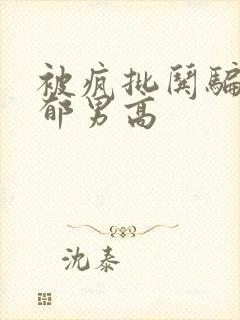 被疯批鬨騙
郁男高
沈泰